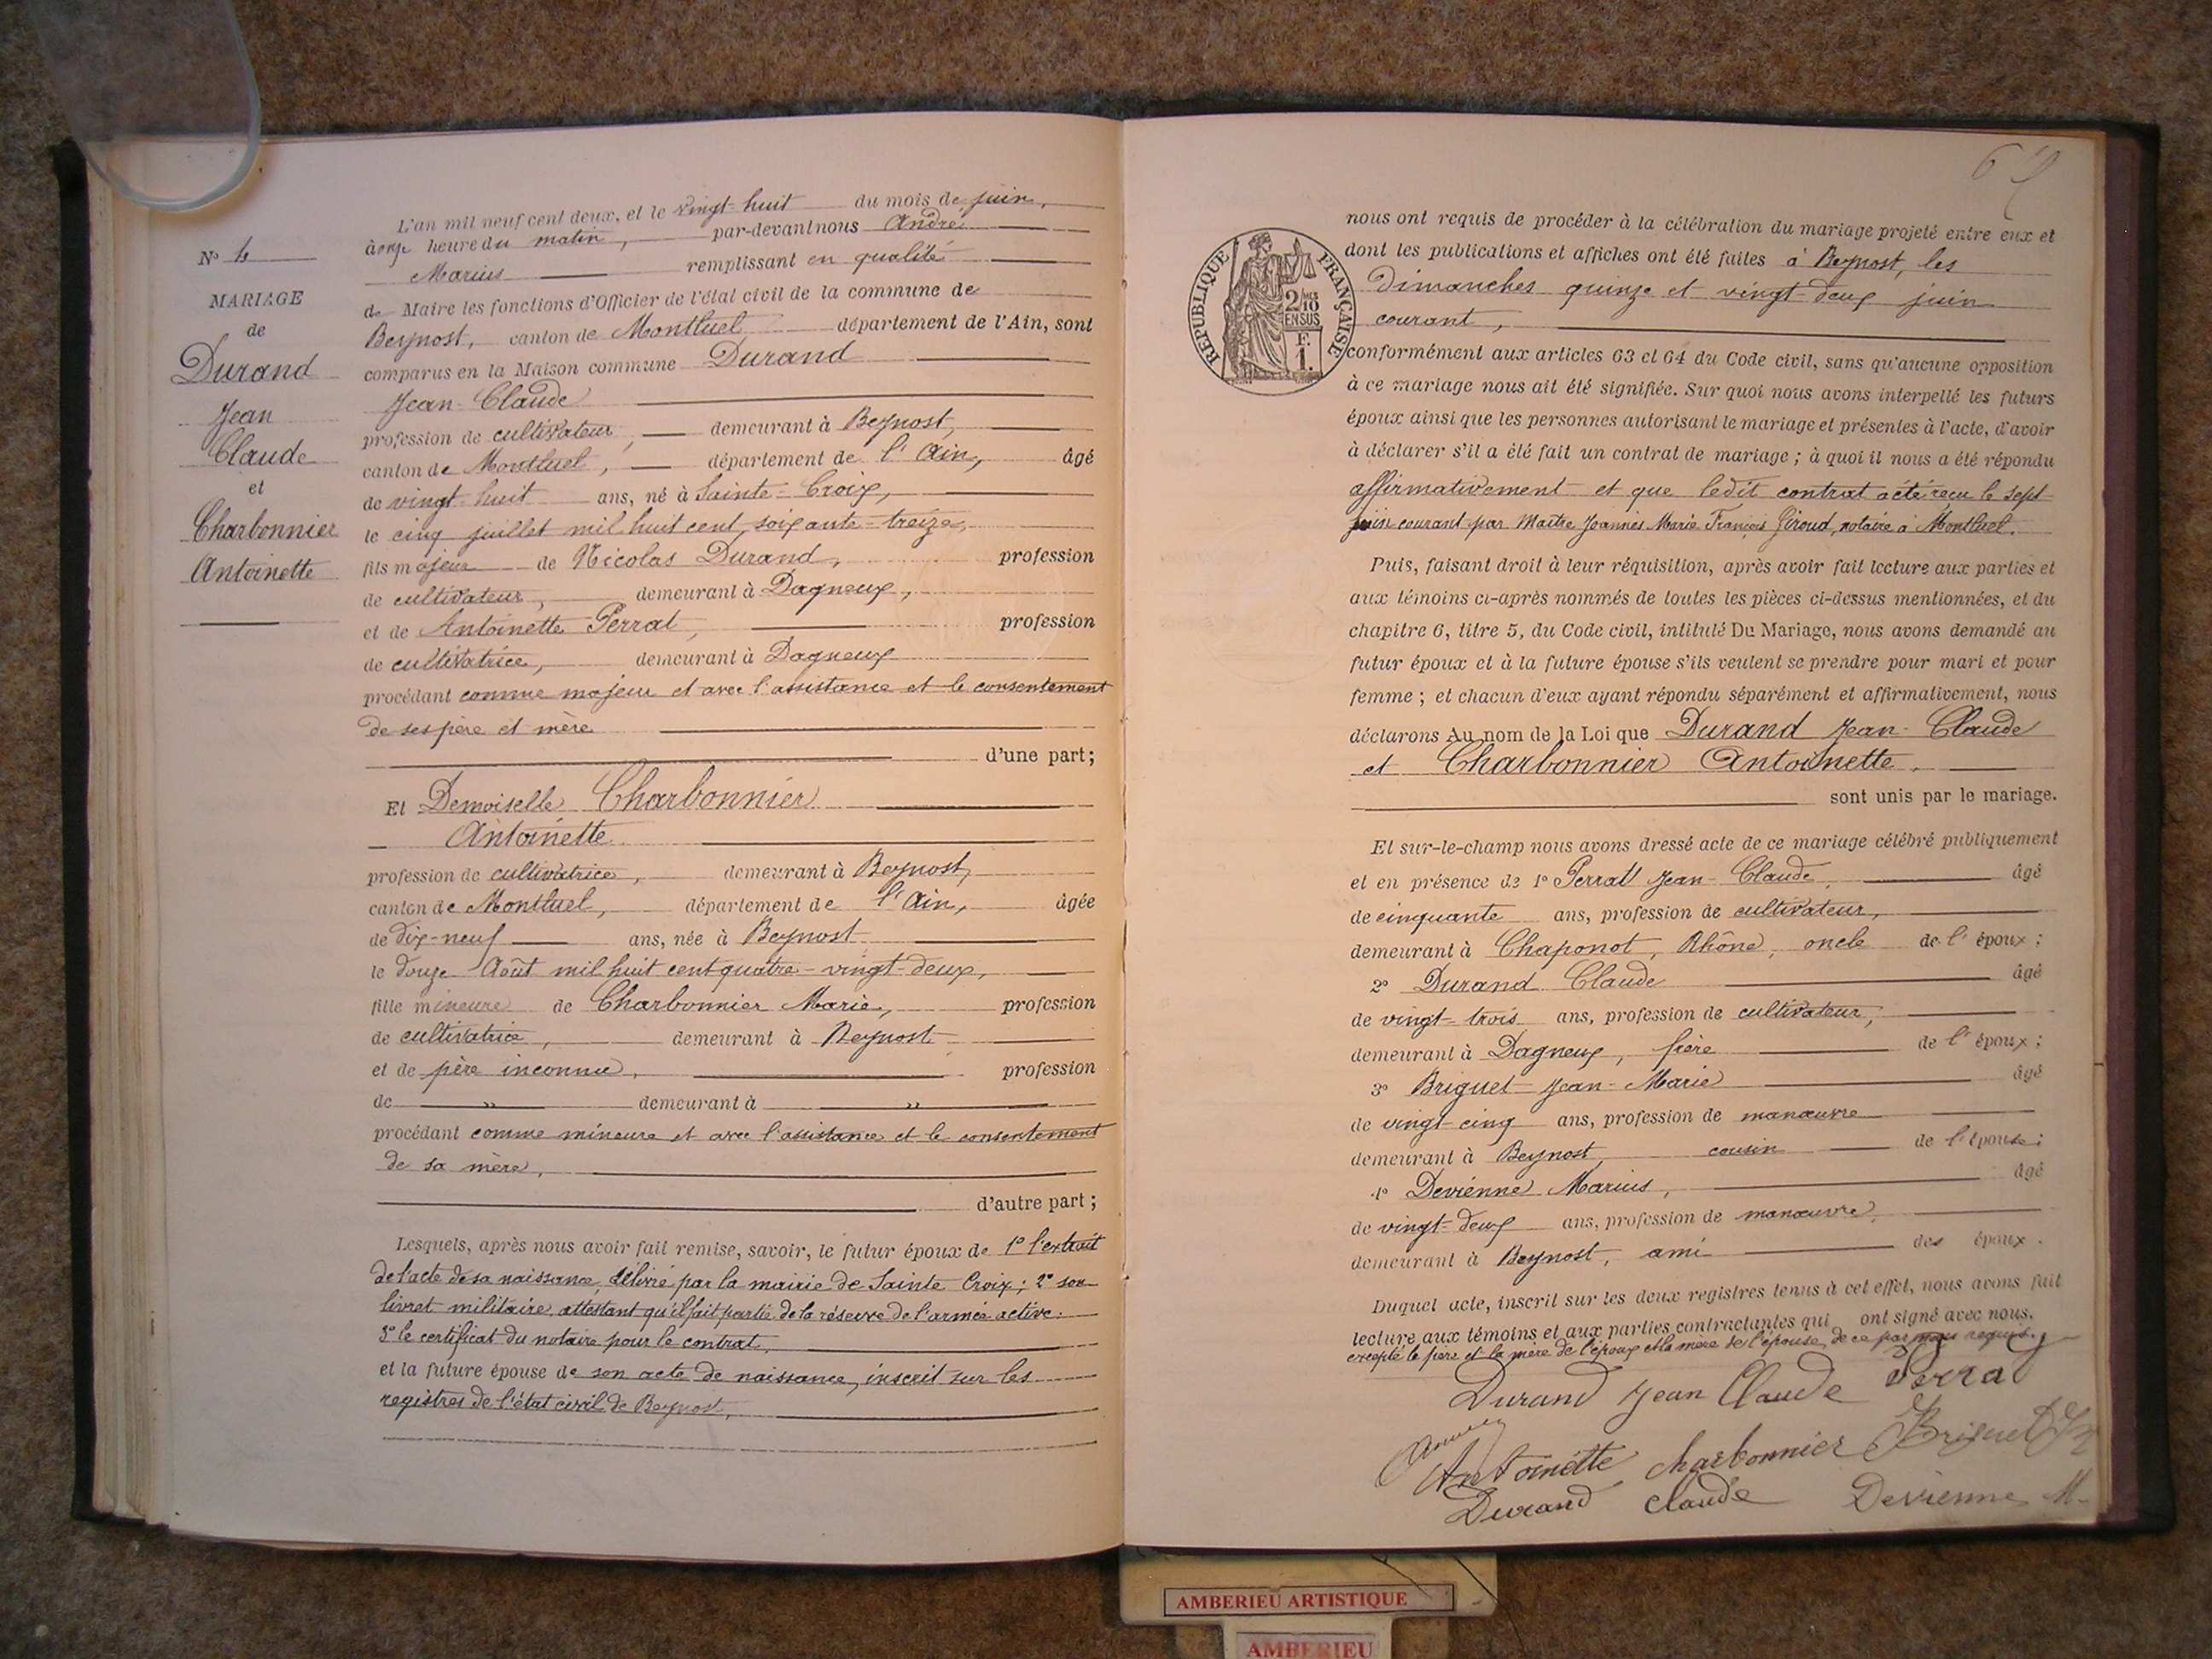 N° 4
MARIAGE
de
Durand
Jean
Claude
et
Charbonnier
Antoinette
L'an mil neuf cent deux, et le vingt-huit du mois de juin,
à onze heure du matin, par-devant nous André
Marius remplissant en qualité
de Maire les fonctions d'Officier de l'état civil de la commune de
Beynost, canton de Montluel département de l'Ain, sont
comparus en la Maison commune Durand
Jean-Claude
profession de cultivateur, demeurant à Beynost,
canton de Montluel, département de l'Ain, âgé
de vingt-huit ans, né à Sainte-Croix,
le cinq juillet mil huit cent soixante-treize,
fils majeur de Nicolas Durand, profession
de cultivateur, demeurant à Dagneux,
et de Antoinette Perrat, profession
de cultivatrice, demeurant à Dagneux
procédant comme majeur et avec l'assistance et le consentement
de ses père et mère
d'une part;
Et Demoiselle Charbonnier
Antoinette
profession de cultivatrice, demeurant à Beynost,
canton de Montluel, département de l'Ain, âgée
de dix-neuf ans, née à Beynost
le douze Août mil huit cent quatre-vingt-deux,
fille mineure de Charbonnier Marie, profession
de cultivatrice, demeurant à Beynost
et de père inconnu, profession
de " demeurant à "
procédant comme mineure et avec l'assistance et le consentement
de sa mère,
d'autre part;
Lesquels, après nous avoir fait remise, savoir, le futur époux de 1° l'extrait
de l'acte de sa naissance, délivré par la mairie de Sainte Croix; 2° son
livret militaire attestant qu'il fait partie de la réserve de l'armée active;
3° le certificat du notaire pour le contrat,
et la future épouse de son acte de naissance, inscrit sur les
registres de l'état civil de Beynost,
RÉPUBLIQUE FRANÇAISE
2/10
EN SUS
F.
1.
nous ont requis de procéder à la célébration du mariage projeté entre eux et
dont les publications et affiches ont été faites à Beynost, les
Dimanches quinze et vingt-deux juin
courant,
conformément aux articles 63 et 64 du Code civil, sans qu'aucune opposition
à ce mariage nous ait été signifiée. Sur quoi nous avons interpellé les futurs
époux ainsi que les personnes autorisant le mariage et présentes à l'acte, d'avoir
à déclarer s'il a été fait un contrat de mariage; à quoi il nous a été répondu
affirmativement et que ledit contrat a été reçu le sept
juin courant par Maître Joannès Marie François Giroud, notaire à Montluel.
Puis, faisant droit à leur réquisition, après avoir fait lecture aux parties et
aux témoins ci-après nommés de toutes les pièces ci-dessus mentionnées, et du
chapitre 6, titre 5, du Code civil, intitulé Du Mariage, nous avons demandé au
futur époux et à la future épouse s'ils veulent se prendre pour mari et pour
femme; et chacun d'eux ayant répondu séparément et affirmativement, nous
déclarons Au nom de la Loi que Durand Jean-Claude
et Charbonnier Antoinette,
sont unis par le mariage.
Et sur-le-champ nous avons dressé acte de ce mariage célébré publiquement
et en présence de 1° Perrat Jean-Claude, âgé
de cinquante ans, profession de cultivateur,
demeurant à Chaponot, Rhône, oncle de l'époux;
2° Durand Claude âgé
de vingt-trois ans, profession de cultivateur,
demeurant à Dagneux, frère de l'époux;
3° Briguet Jean-Marie âgé
de vingt-cinq ans, profession de manœuvre
demeurant à Beynost, cousin de l'épouse;
4° Devienne Marius, âgé
de vingt-deux ans, profession de manœuvre,
demeurant à Beynost, ami des époux.
Duquel acte, inscrit sur les deux registres tenus à cet effet, nous avons fait
lecture aux témoins et aux parties contractantes qui ont signé avec nous.
excepté le père et la mère de l'époux et la mère de l'épouse, de ce par nous requis.
Durand Jean Claude Perrat
Antoinette Charbonnier Briguet
Durand Claude Devienne M.
AMBERIEU ARTISTIQUE
AMBERIEU